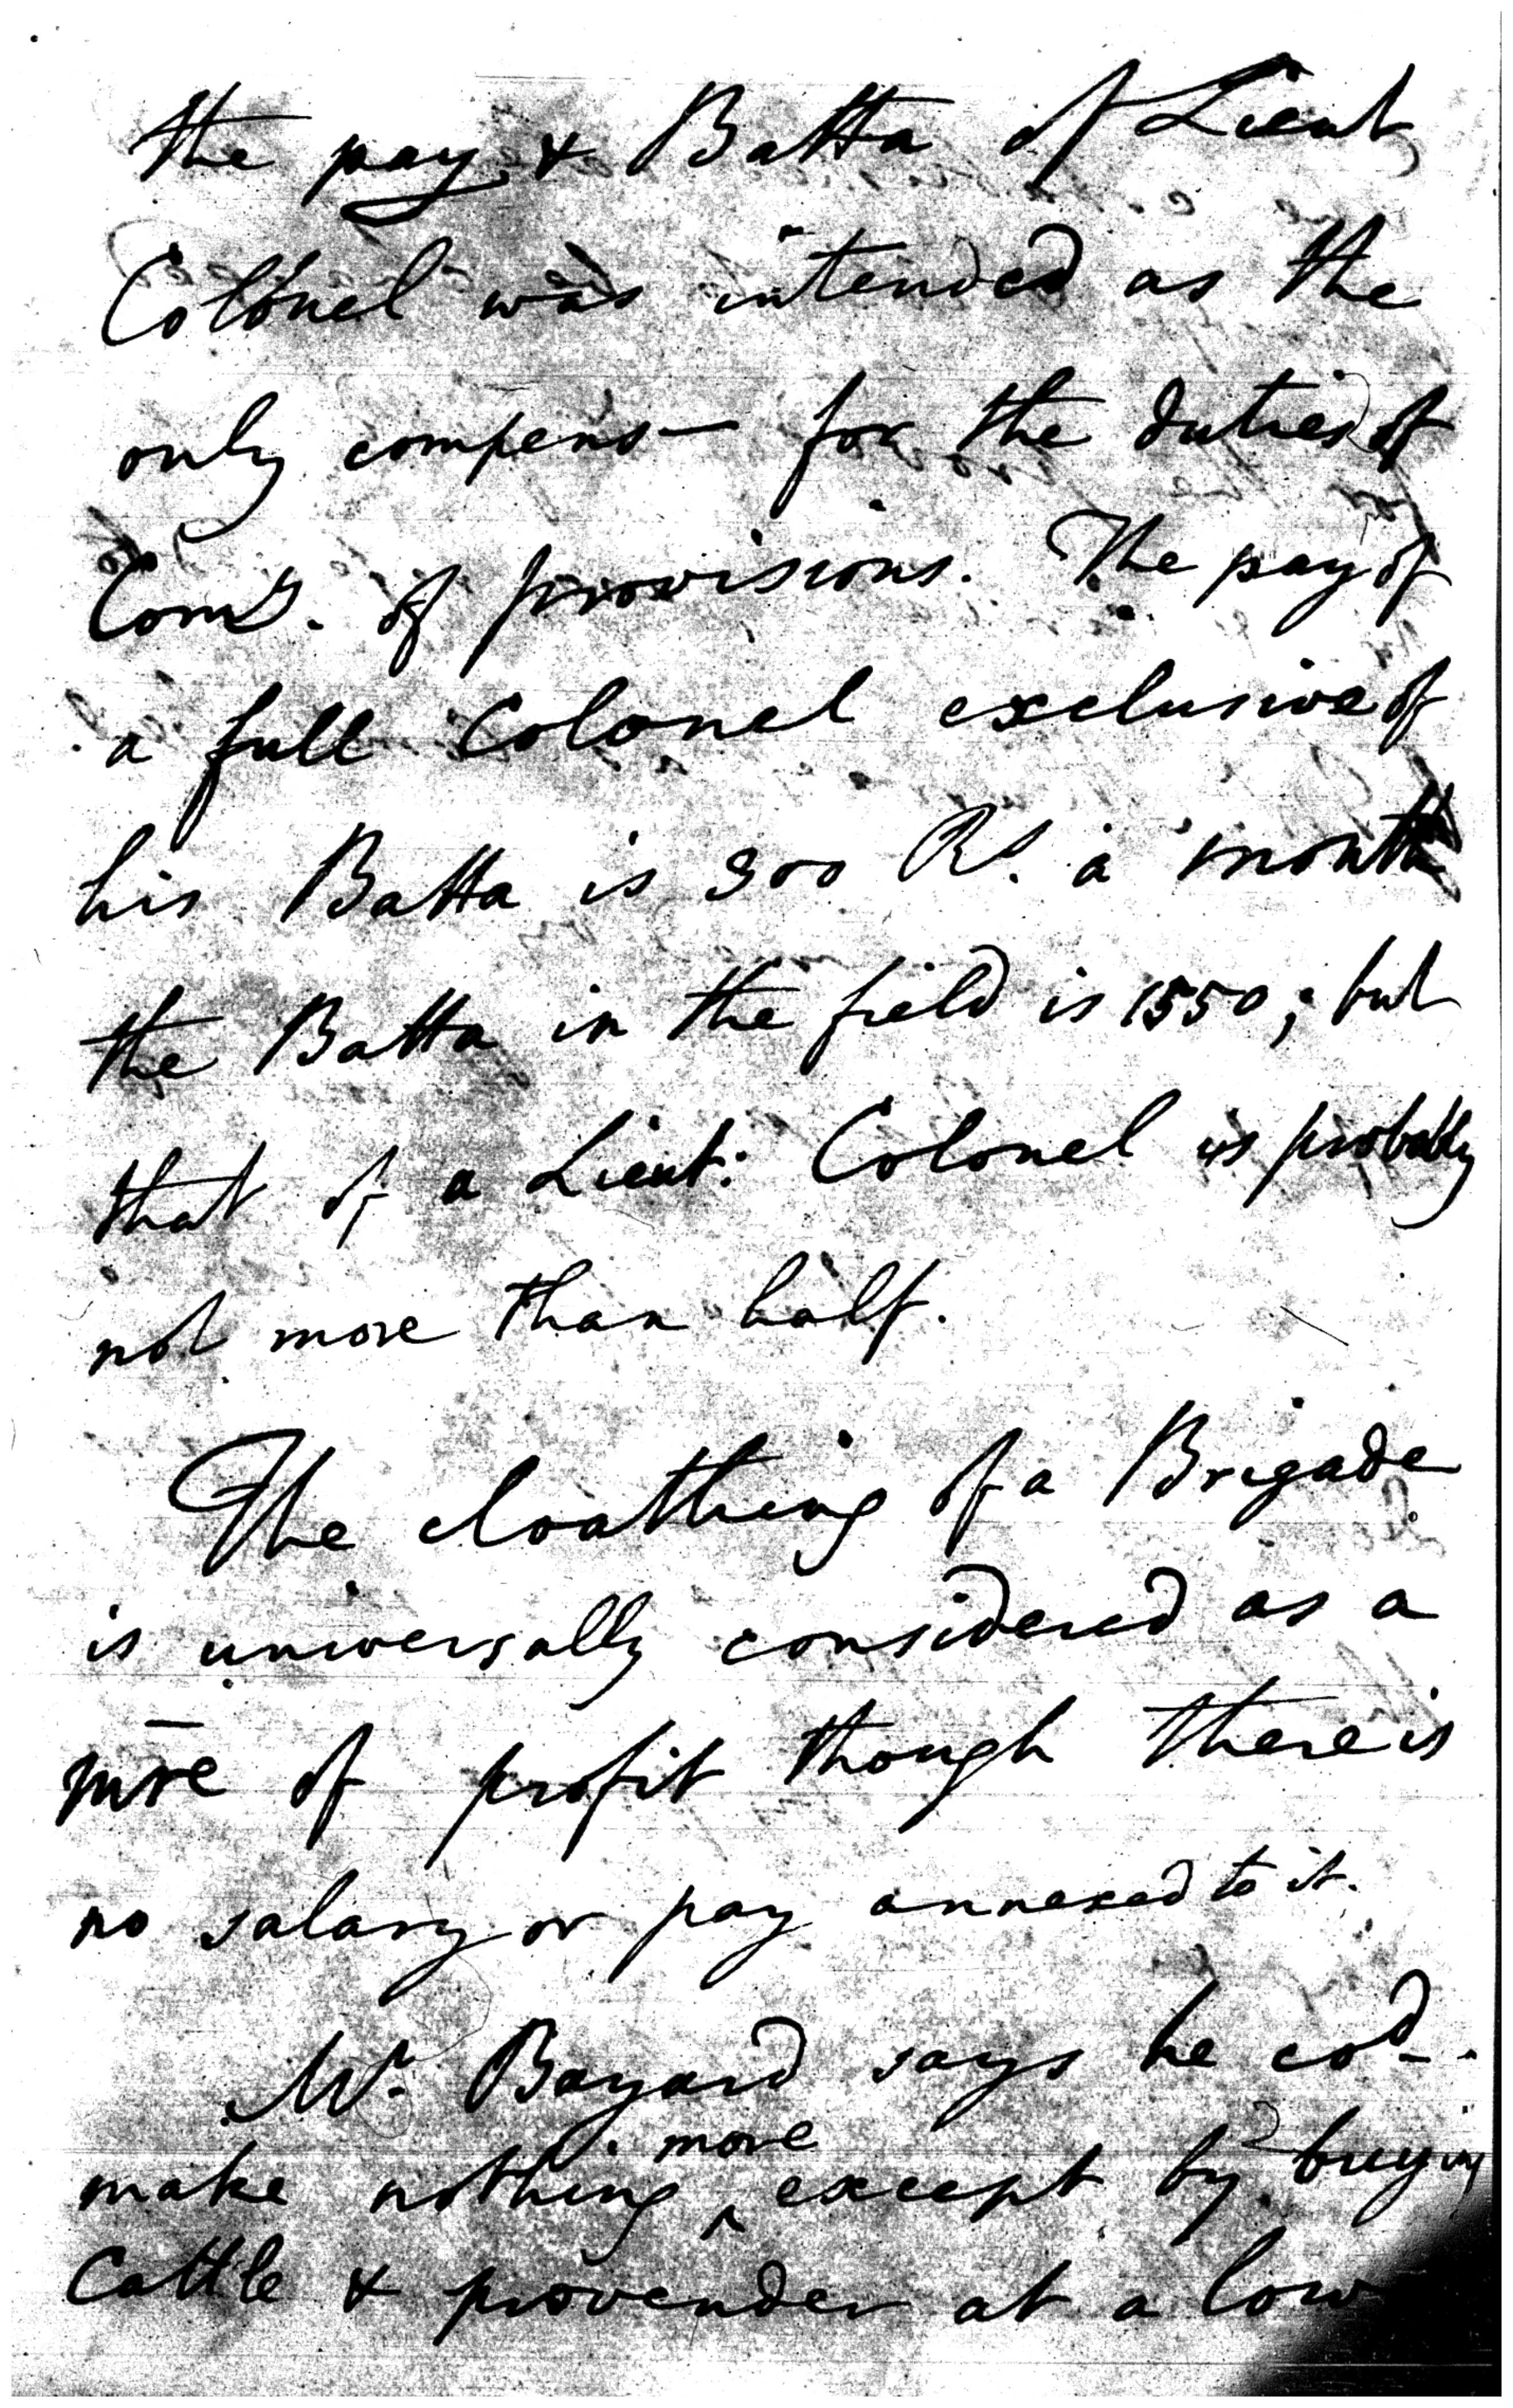 the pay & Batta of Lieut
Colonel was intended as the
only compens— for the duties of
Comy. of provisions. The pay of
a full Colonel exclusive of
his Batta is 300 Rs. a month
the Batta in the field is 1550; but
that of a Lieut: Colonel is probably
not more than half.
The cloathing of a Brigade
is universally considered as a
of profit though there is
no salary or pay annexed to it.
Mr. Bayard says he cod.
make nothing more except by buying
Cattle & provender at a low